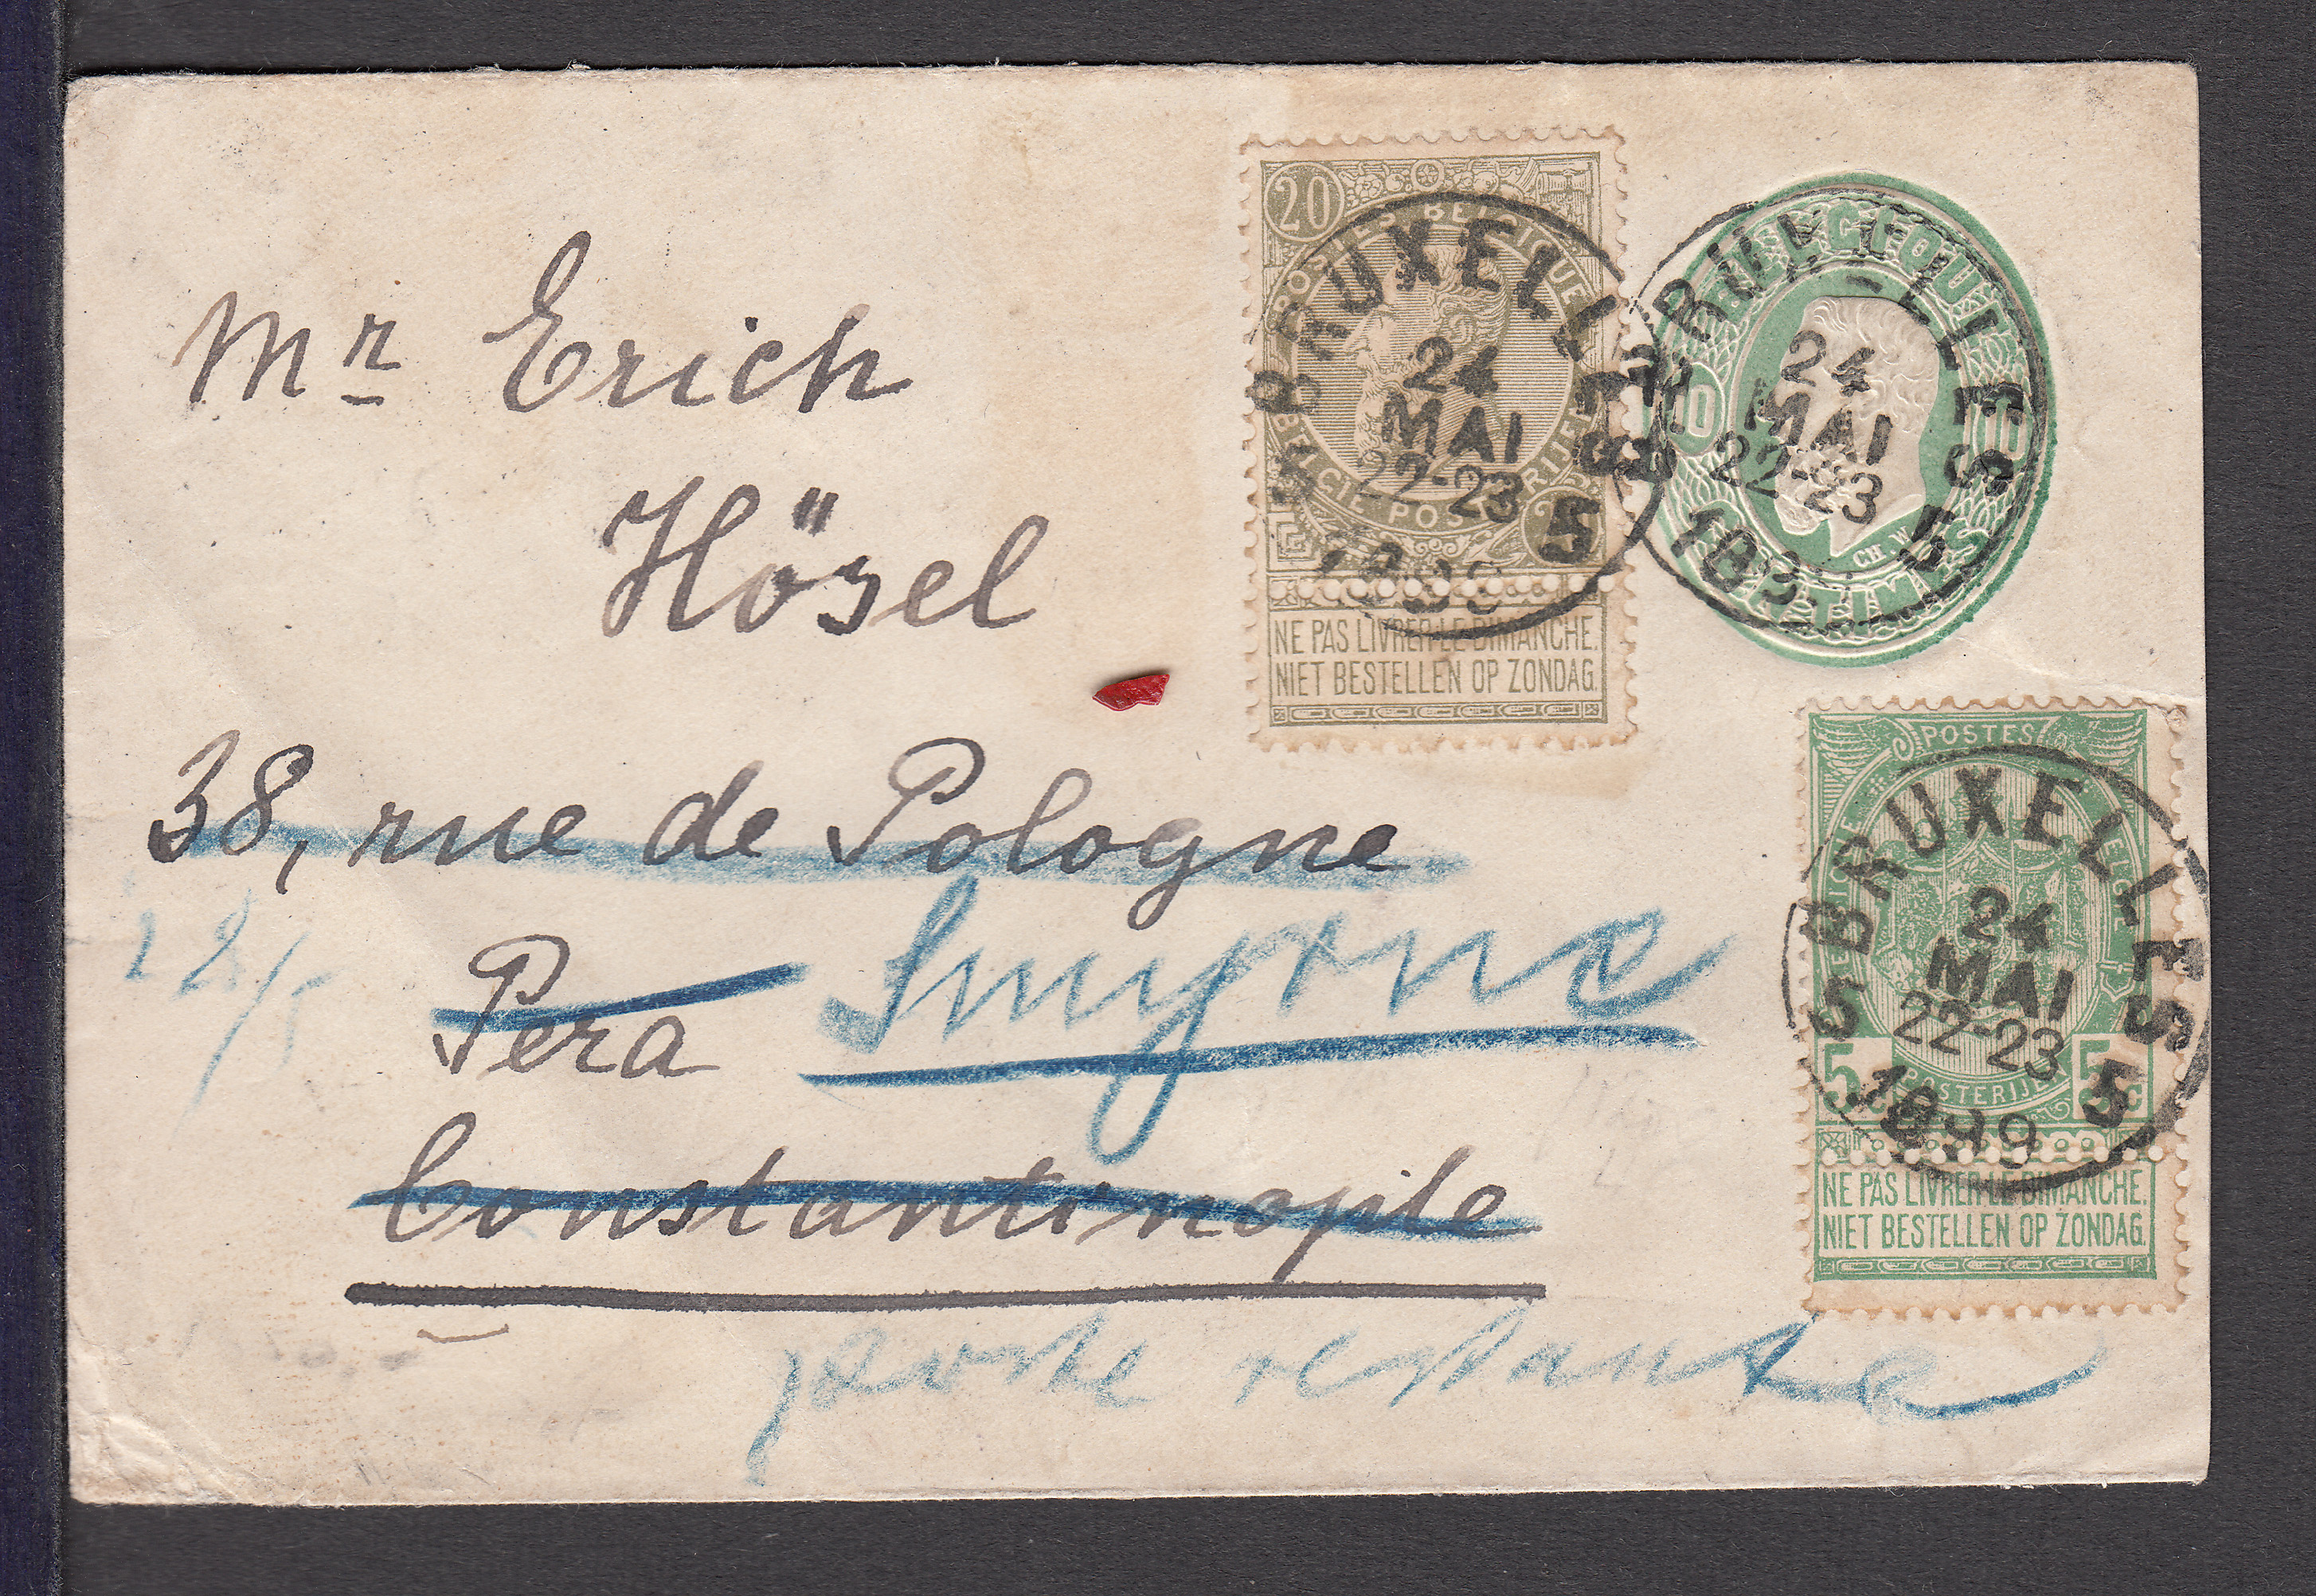 Mr Erich
Hösel
38, rue de Pologne
Pera
Smyrne
Constantinople
poste restante
20
POSTES BELGIQUE
BELGIE POSTERIJEN
NE PAS LIVRER LE DIMANCHE.
NIET BESTELLEN OP ZONDAG.
BRUXELLES 5
24
MAI
22-23
1899
BELGIQUE
10
CENTIMES
CH. W
BRUXELLES 5
24
MAI
22-23
POSTES
BELGIQUE
BELGIE
POSTERIJEN
5c 5c
NE PAS LIVRER LE DIMANCHE.
NIET BESTELLEN OP ZONDAG.
BRUXELLES 5
24
MAI
22-23
1899